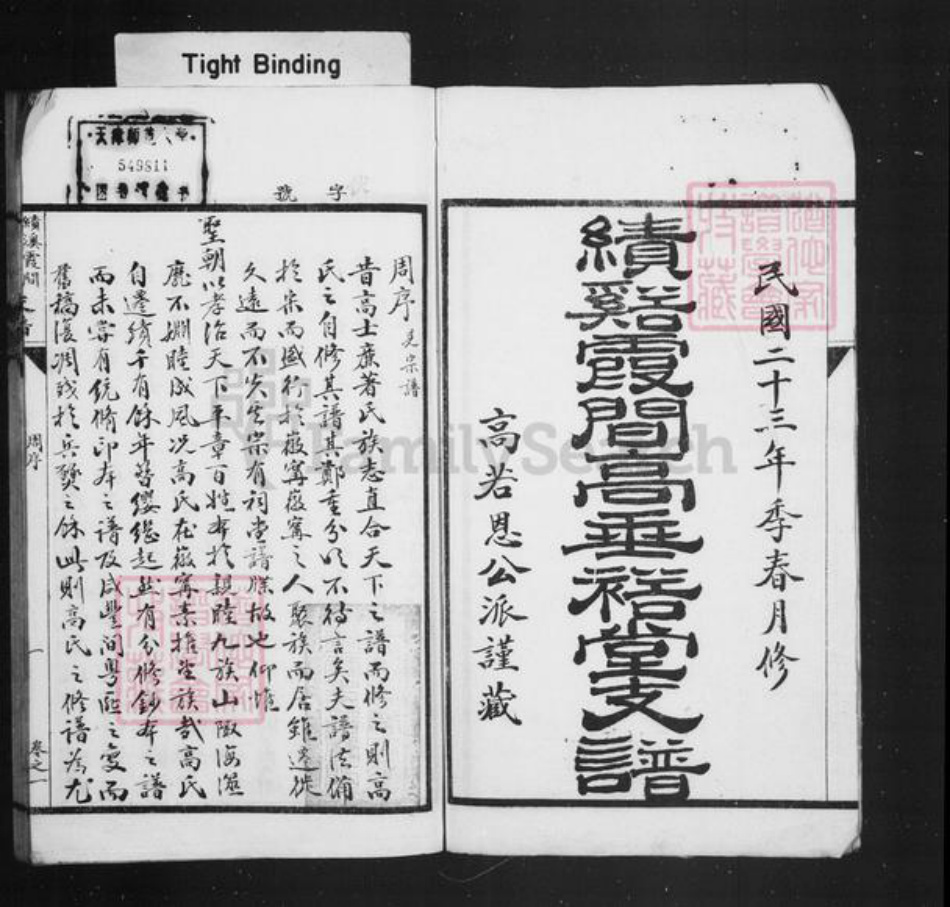 Tight Binding
民國二十三年季春月修
績谿霞間高垂裕堂支譜
高若恩公派謹藏
字號
549811
周序 見宗譜
昔高士廉著氏族志直合天下之譜而修之則高
氏之自修其譜其鄭重分以不待言矣夫譜法備
於宋而盛行於徽寧徽寧之人聚族而居雖遷徙
久遠而不失其宗有祠堂譜牒故也仰惟
聖朝以孝治天下平章百姓本於親睦九族山陬海澨
靡不嫻睦成風况高氏在徽寧素推望族哉高氏
自遷績千有餘年簪纓繼起然有分修鈔本之譜
而未嘗有統脩印本之譜及咸豐間粵匪之變而
舊稿復凋殘於兵燹之餘此則高氏之修譜為尤
績溪霞間
周序
一
卷之一
FamilySearch